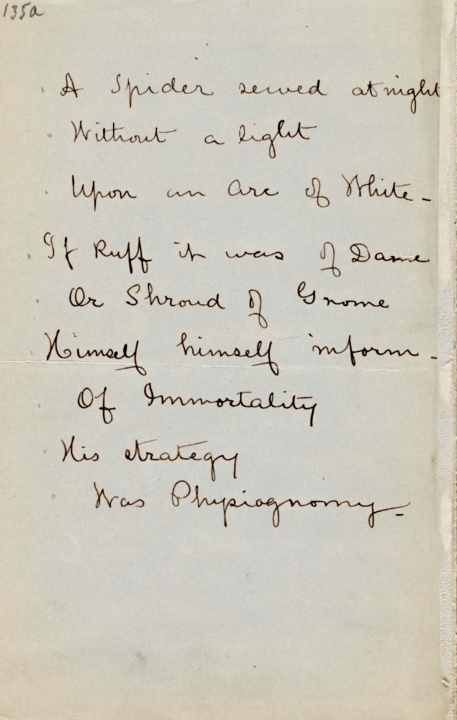 135a
A Spider sewed at night
Without a light
Upon an Arc of White -
If Ruff it was of Dame
Or Shroud of Gnome
Himself himself inform -
Of Immortality
His strategy
Was Physiognomy -